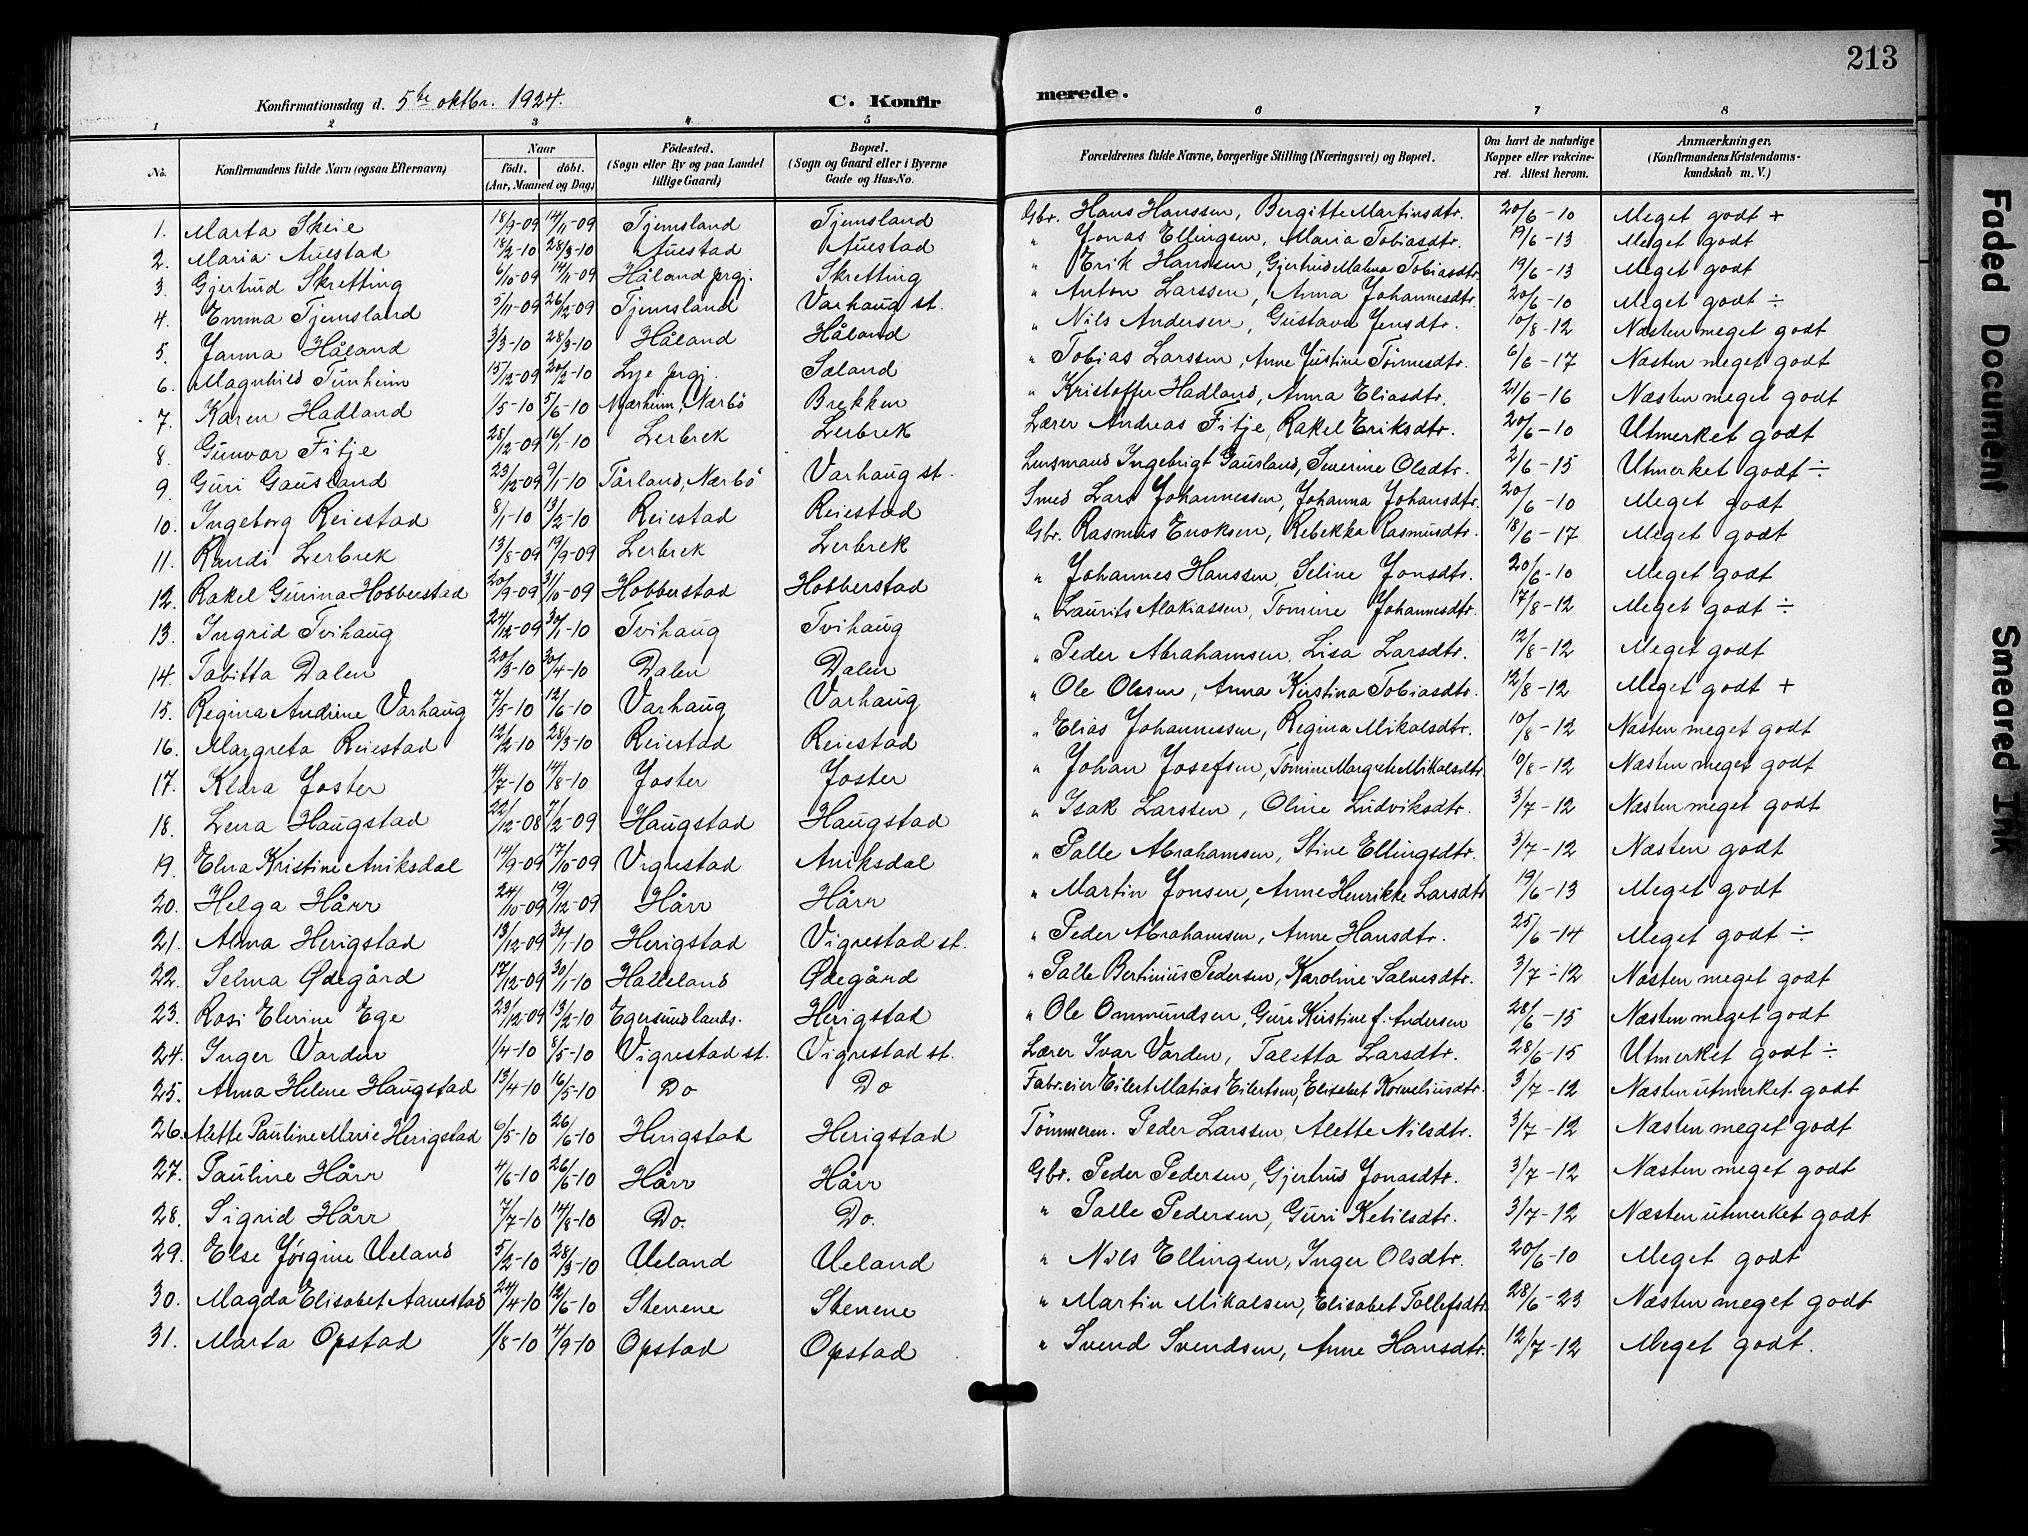 213
Konfirmationsdag d. 5te oktbr. 1924. C. Konfirmerede.
1 2 3 4 5 6 7 8
No. Konfirmandens fulde Navn (ogsaa Efternavn) Naar født. døbt. (Aar, Maaned og Dag) Fødested. (Sogn eller By og paa Landet tillige Gaard) Bopæl. (Sogn og Gaard eller i Byerne Gade og Hus-No. Forældrenes fulde Navne, borgerlige Stilling (Næringsvei) og Bopæl. Om havt de naturlige Kopper eller vakcineret. Attest herom. Anmærkninger. (Konfirmandens Kristendomskundskab m. V.)
1. Marta Skeie 18/9-09 14/11-09 Tjemsland Tjemsland Gbr. Hans Hanssen, Bergitte Martinsdtr. 20/6-10 Meget godt +
2. Maria Auestad 18/2-10 28/3-10 Auestad Auestad " Jonas Ellingsen, Maria Tobiasdtr. 19/6-13 Meget godt
3. Gjertrud Skretting 6/10-09 14/11-09 Håland prgj. Skretting " Erik Hanssen, Gjertrud Malena Tobiasdtr. 19/6-13 Meget godt
4. Emma Tjemsland 5/11-09 26/12-09 Tjemsland Varhaug st. " Anton Larssen, Anna Johannesdtr. 20/6-10 Meget godt ÷
5. Janna Håland 3/3-10 28/3-10 Håland Håland " Nils Andersen, Gustava Jensdtr. 10/8-12 Næsten meget godt
6. Magnhild Tunheim 15/12-09 20/2-10 Lye prgj. Søland " Tobias Larssen, Anne Justine Tönnesdtr. 6/6-17 Næsten meget godt
7. Karen Hadland 1/5-10 5/6-10 Nærheim, Nærbö Brekken " Kristoffer Hadland, Anna Eliasdtr. 21/6-16 Næsten meget godt
8. Gunvor Fitje 28/12-09 16/1-10 Lerbrek Lerbrek Lærer Andreas Fitje, Rakel Eriksdtr. 20/6-10 Utmerket godt
9. Guri Gausland 23/12-09 9/1-10 Tårland, Nærbö Varhaug st. Lensmand Ingebrigt Gausland, Severine Olsdtr. 2/6-15 Utmerket godt ÷
10. Ingeborg Reiestad 8/1-10 13/2-10 Reiestad Reiestad Smed Lars Johannessen, Johanna Johansdtr. 20/6-10 Meget godt
11. Randi Lerbrek 13/8-09 19/9-09 Lerbrek Lerbrek Gbr. Rasmus Enoksen, Rebekka Rasmusdtr. 18/6-17 Meget godt
12. Rakel Gurina Hobberstad 20/9-09 31/10-09 Hobberstad Hobberstad " Johannes Hanssen, Seline Jonsdtr. 20/6-10 Meget godt
13. Ingrid Tvihaug 24/12-09 30/1-10 Tvihaug Tvihaug " Laurits Malakiassen, Tomine Johannesdtr. 17/8-12 Meget godt ÷
14. Tabitta Dalen 20/3-10 30/4-10 Dalen Dalen " Peder Abrahamsen, Lisa Larsdtr. 12/8-12 Meget godt
15. Regina Andrine Varhaug 7/5-10 12/6-10 Varhaug Varhaug " Ole Olssen, Anna Kirstina Tobiasdtr. 12/8-12 Meget godt +
16. Margreta Reiestad 12/2-10 28/3-10 Reiestad Reiestad " Elias Johannessen, Regina Mikalsdtr. 10/8-12 Næsten meget godt
17. Klara Joster 4/7-10 14/8-10 Joster Joster " Johan Josefsen, Tomine Margrete Mikalsdtr. 10/8-12 Næsten meget godt
18. Lena Haugstad 22/12-08 7/2-09 Haugstad Haugstad " Isak Larssen, Oline Ludviksdtr. 3/7-12 Næsten meget godt
19. Elna Kristine Aniksdal 14/9-09 17/10-09 Vigrestad Aniksdal " Palle Abrahamsen, Stine Ellingsdtr. 3/7-12 Næsten godt
20. Helga Hårr 24/10-09 19/12-09 Hårr Hårr " Martin Jonsen, Anne Henrikke Larsdtr. 19/6-13 Meget godt
21. Anna Herigstad 13/12-09 30/1-10 Herigstad Vigrestad st. " Peder Abrahamsen, Anne Hansdtr. 25/6-14 Meget godt ÷
22. Selma Ødegård 17/12-09 30/1-10 Halleland Ødegård " Palle Bertinius Pedersen, Karoline Salvesdtr. 3/7-12 Næsten meget godt
23. Rasi Elerine Ege 23/12-09 13/2-10 Egersund lands. Herigstad " Ole Ommundsen, Guri Kirstine f. Andersen 28/6-15 Næsten meget godt
24. Inger Varden 1/4-10 8/5-10 Vigrestad st. Vigrestad st. Lærer Ivar Varden, Taletta Larsdtr. 28/6-15 Utmerket godt ÷
25. Anna Helene Haugstad 13/4-10 16/5-10 Do Do Fabr.eier Eilert Matias Eilertsen, Elisebet Korneliusdtr. 3/7-12 Næsten utmerket godt
26. Alette Pauline Marie Herigstad 6/5-10 26/6-10 Herigstad Herigstad Tömmerm. Peder Larssen, Alette Nilsdtr. 3/7-12 Næsten meget godt
27. Pauline Hårr 4/6-10 26/6-10 Hårr Hårr Gbr. Peder Pedersen, Gjertrud Jonasdtr. 3/7-12 Næsten meget godt
28. Sigrid Hårr 7/7-10 14/8-10 Do. Do. " Palle Pedersen, Guri Ketilsdtr. 3/7-12 Næsten utmerket godt
29. Else Jørgine Ueland 5/2-10 28/3-10 Ueland Ueland " Nils Ellingsen, Inger Olsdtr. 20/6-10 Meget godt
30. Magda Elisabet Aanestad 24/4-10 12/6-10 Stenene Stenene " Martin Mikalsen, Elisabet Tollefsdtr. 28/6-23 Næsten meget godt
31. Marta Opstad 1/8-10 4/9-10 Opstad Opstad " Svend Svendsen, Anne Hansdtr. 12/7-12 Meget godt.
Faded Document
Smeared Ink